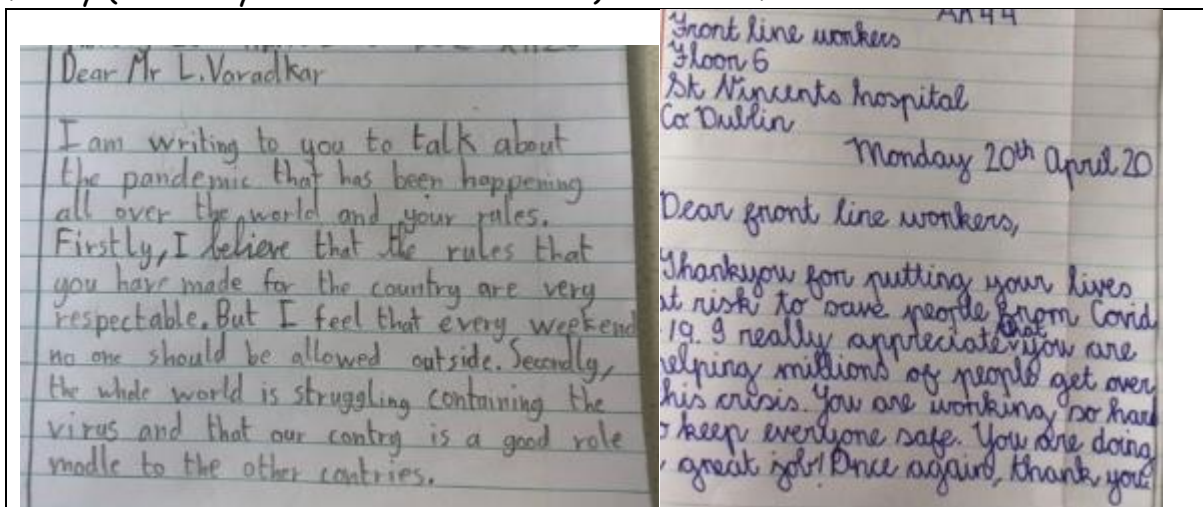 Dear Mr L.Varadkar
I am writing to you to talk about
the pandemic that has been happening
all over the world and your rules.
Firstly, I believe that the rules that
you have made for the country are very
respectable. But I feel that every weekend
no one should be allowed outside. Secondly,
the whole world is struggling containing the
virus and that our contry is a good role
modle to the other contries.
Front line workers
Floor 6
St Vincents hospital
Co Dublin
Monday 20th April 20
Dear front line workers,
Thankyou for putting your lives
at risk to save people from Covid
19. I really appreciate that you are
elping millions of people get over
his crisis. You are working so hard
o keep everyone safe. You are doing
great job! Once again, thank you